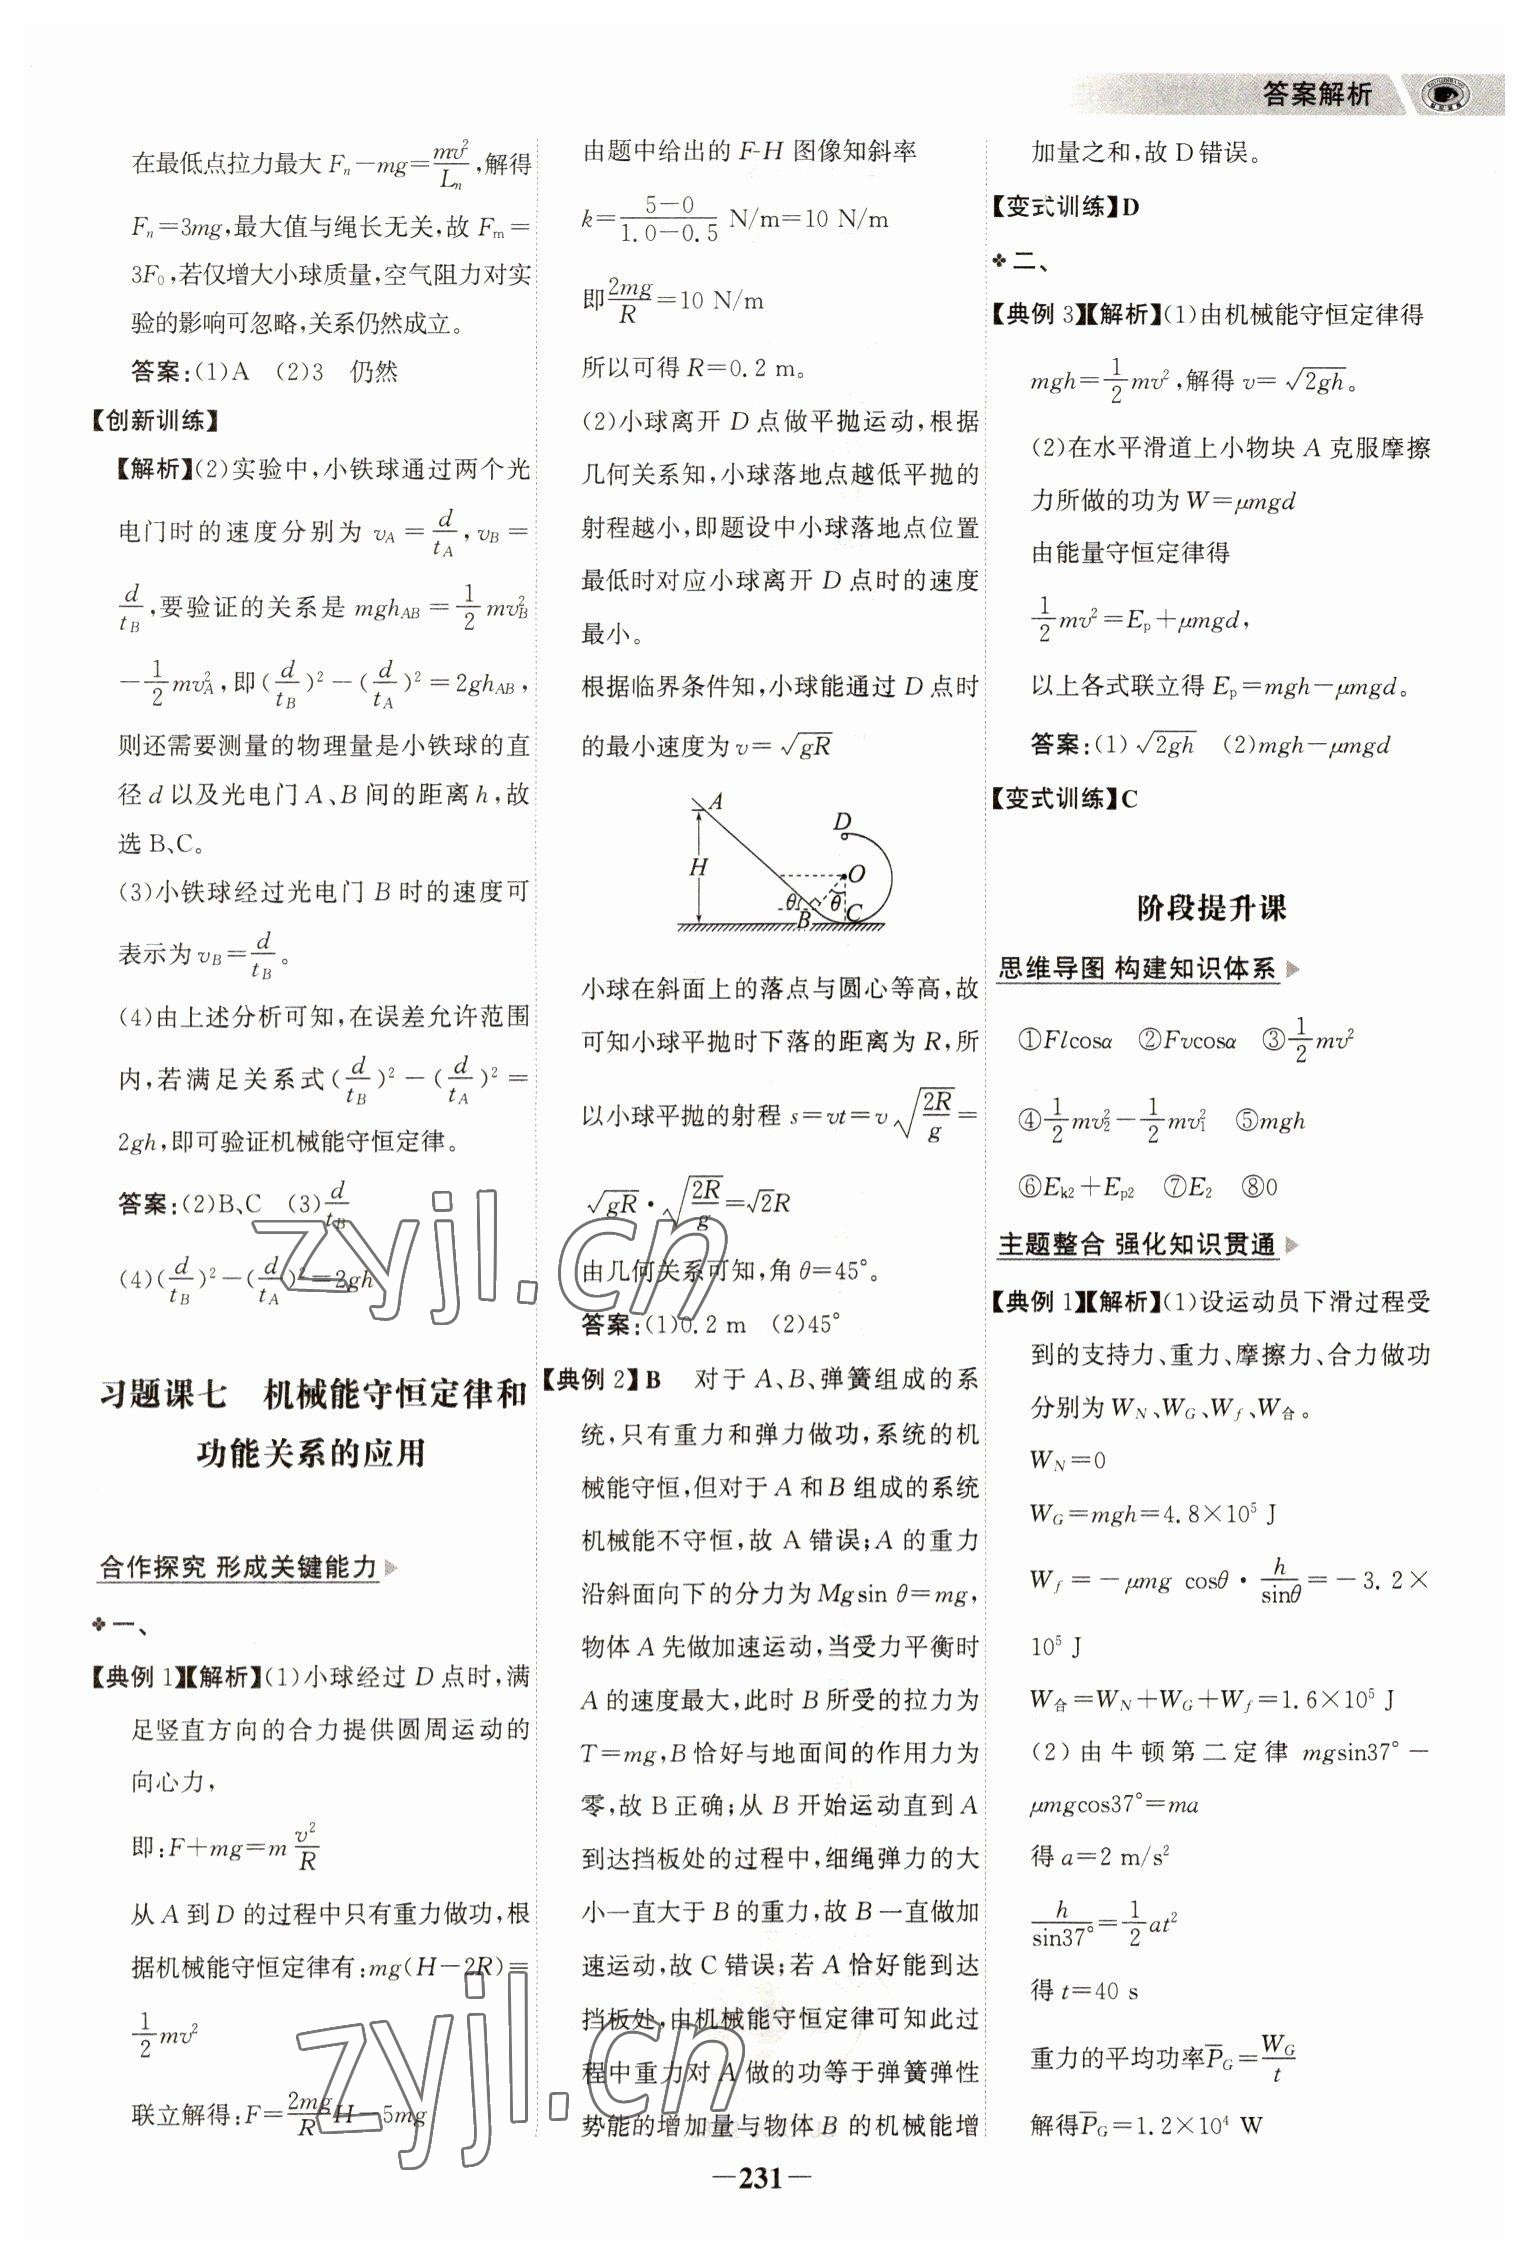 答案解析
在最低点拉力最大 Fₙ－mg＝mv²/Lₙ,解得
Fₙ＝3mg,最大值与绳长无关,故 Fₘ＝
3F₀,若仅增大小球质量,空气阻力对实
验的影响可忽略,关系仍然成立。
答案:(1)A　(2)3　仍然
【创新训练】
【解析】(2)实验中,小铁球通过两个光
电门时的速度分别为 v_A＝d/t_A,v_B＝
d/t_B,要验证的关系是 mgh_AB＝1/2 mv_B²
－1/2 mv_A²,即(d/t_B)²－(d/t_A)²＝2gh_AB,
则还需要测量的物理量是小铁球的直
径 d 以及光电门 A、B 间的距离 h,故
选 B、C。
(3)小铁球经过光电门 B 时的速度可
表示为 v_B＝d/t_B。
(4)由上述分析可知,在误差允许范围
内,若满足关系式(d/t_B)²－(d/t_A)²＝
2gh,即可验证机械能守恒定律。
答案:(2)B、C　(3)d/t_B
(4)(d/t_B)²－(d/t_A)²＝2gh
习题课七　机械能守恒定律和
功能关系的应用
合作探究 形成关键能力
一、
【典例 1】【解析】(1)小球经过 D 点时,满
足竖直方向的合力提供圆周运动的
向心力,
即:F＋mg＝m v²/R
从 A 到 D 的过程中只有重力做功,根
据机械能守恒定律有:mg(H－2R)＝
1/2 mv²
联立解得:F＝2mg/R H－5mg
由题中给出的 F-H 图像知斜率
k＝(5－0)/(1.0－0.5) N/m＝10 N/m
即 2mg/R＝10 N/m
所以可得 R＝0.2 m。
(2)小球离开 D 点做平抛运动,根据
几何关系知,小球落地点越低平抛的
射程越小,即题设中小球落地点位置
最低时对应小球离开 D 点时的速度
最小。
根据临界条件知,小球能通过 D 点时
的最小速度为 v＝√(gR)
A
D
H
O
θ
θ
B
C
小球在斜面上的落点与圆心等高,故
可知小球平抛时下落的距离为 R,所
以小球平抛的射程 s＝vt＝v√(2R/g)＝
√(gR)·√(2R/g)＝√2R
由几何关系可知,角 θ＝45°。
答案:(1)0.2 m　(2)45°
【典例 2】B　对于 A、B、弹簧组成的系
统,只有重力和弹力做功,系统的机
械能守恒,但对于 A 和 B 组成的系统
机械能不守恒,故 A 错误;A 的重力
沿斜面向下的分力为 Mgsin θ＝mg,
物体 A 先做加速运动,当受力平衡时
A 的速度最大,此时 B 所受的拉力为
T＝mg,B 恰好与地面间的作用力为
零,故 B 正确;从 B 开始运动直到 A
到达挡板处的过程中,细绳弹力的大
小一直大于 B 的重力,故 B 一直做加
速运动,故 C 错误;若 A 恰好能到达
挡板处,由机械能守恒定律可知此过
程中重力对 A 做的功等于弹簧弹性
势能的增加量与物体 B 的机械能增
加量之和,故 D 错误。
【变式训练】D
二、
【典例 3】【解析】(1)由机械能守恒定律得
mgh＝1/2 mv²,解得 v＝√(2gh)。
(2)在水平滑道上小物块 A 克服摩擦
力所做的功为 W＝μmgd
由能量守恒定律得
1/2 mv²＝Eₚ＋μmgd,
以上各式联立得 Eₚ＝mgh－μmgd。
答案:(1)√(2gh)　(2)mgh－μmgd
【变式训练】C
阶段提升课
思维导图 构建知识体系
①Flcosα　②Fvcosα　③1/2 mv²
④1/2 mv₂²－1/2 mv₁²　⑤mgh
⑥E_k2＋E_p2　⑦E₂　⑧0
主题整合 强化知识贯通
【典例 1】【解析】(1)设运动员下滑过程受
到的支持力、重力、摩擦力、合力做功
分别为 W_N、W_G、W_f、W合。
W_N＝0
W_G＝mgh＝4.8×10⁵ J
W_f＝－μmg cosθ·h/sinθ＝－3.2×
10⁵ J
W合＝W_N＋W_G＋W_f＝1.6×10⁵ J
(2)由牛顿第二定律 mgsin37°－
μmgcos37°＝ma
得 a＝2 m/s²
h/sin37°＝1/2 at²
得 t＝40 s
重力的平均功率 P̄_G＝W_G/t
解得 P̄_G＝1.2×10⁴ W
－231－
zyjl.cn
zyjl.cn